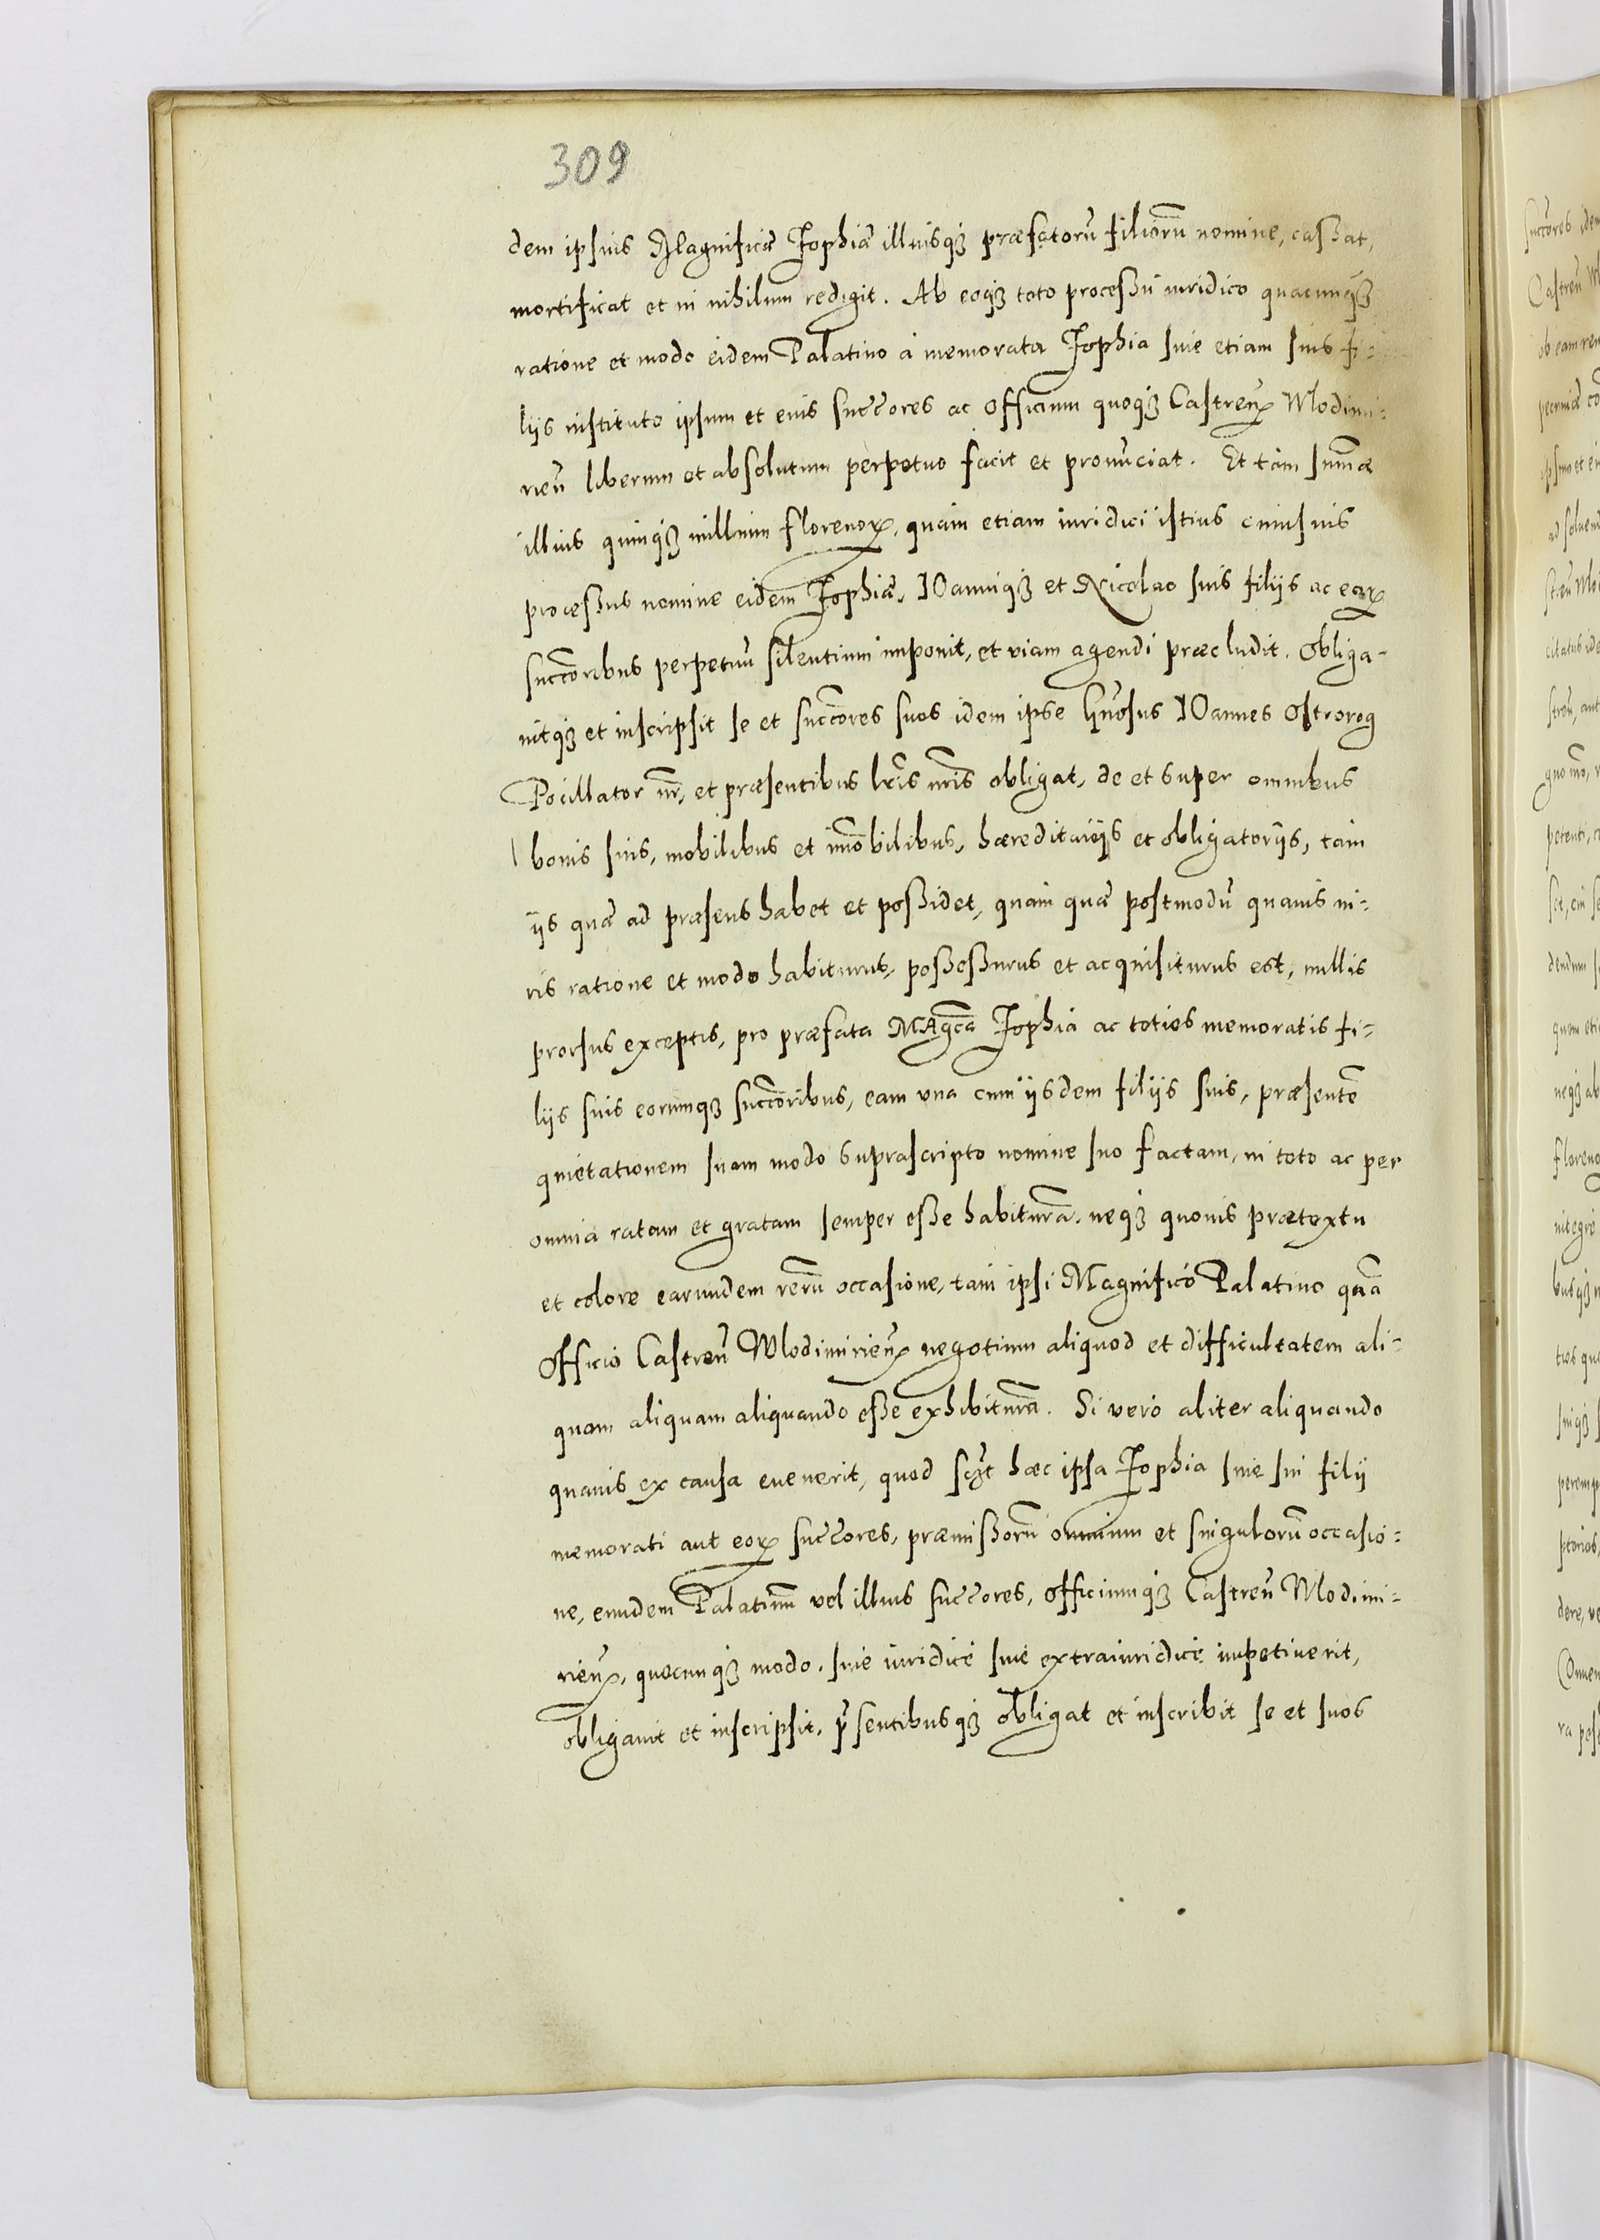 309
dem ipsius Magnificæ Zophiæ illiusqꝫ præfatorū filiorū nomine, cassat,
mortificat et in nihilum redigit. Ab eoqꝫ toto processu iuridico quacunqꝫ
ratione et modo eidem Palatino à memorata Zophia siue etiam suis fi-
liis instituto ipsum et eius succ̄ores ac Officium quoqꝫ Castreñ Wlodimi-
rieñ liberum et absolutum perpetuo facit et pronūciat. Et tàm sum̄æ
illius quinqꝫ millium florenoꝝ, quàm etiam iuridici istius cuiusuis
processus nomine eidem Zophiæ, IOanniqꝫ et Nicolao suis filijs ac eoꝝ
succ̄oribus perpetuū silentium imponit, et viam agendi præcludit. Obliga-
uitqꝫ et inscripsit se et succ̄ores suos idem ipse Gn̄osus IOannes Ostrorog
Pocillator nr̄, et præsentibus lr̄is nr̄is obligat, de et super omnibus
bonis suis, mobilibus et im̄obilibus, hæreditarijs et obligatorijs, tàm
ijs quæ ad præsens habet et possidet, quàm quæ postmodū quauis iu-
ris ratione et modo habiturus, possessurus et acquisiturus est, nullis
prorsus exceptis, pro præfata MAgc̄a Zophia ac toties memoratis fi-
lijs suis eorumqꝫ succ̄oribus, eam vna cum ijsdem filijs suis, præsentē
quietationem suam modo suprascripto nomine suo factam, in toto ac per
omnia ratam et gratam semper esse habiturā, neqꝫ quouis prætextu
et colore earundem rerū occasione, tàm ipsi Magnifico Palatino quā
Officio Castreñ Wlodimirieñ negotium aliquod et difficultatem ali-
quam aliquam aliquando esse exhibiturā. Si verò aliter aliquando
quauis ex causa euenerit, quod sc̄ꝫt hæc ipsa Zophia siue sui filij
memorati aut eoꝝ succ̄ores, præmissorū omnium et singulorū occasio-
ne, eundem Palatinū vel illius succ̄ores, Officiumqꝫ Castreñ Wlodimi-
rieñ, quocunqꝫ modo, siue iuridicè siue extraiuridicè impetiuerit,
obligauit et inscripsit, p̄sentibusqꝫ obligat et inscribit se et suos